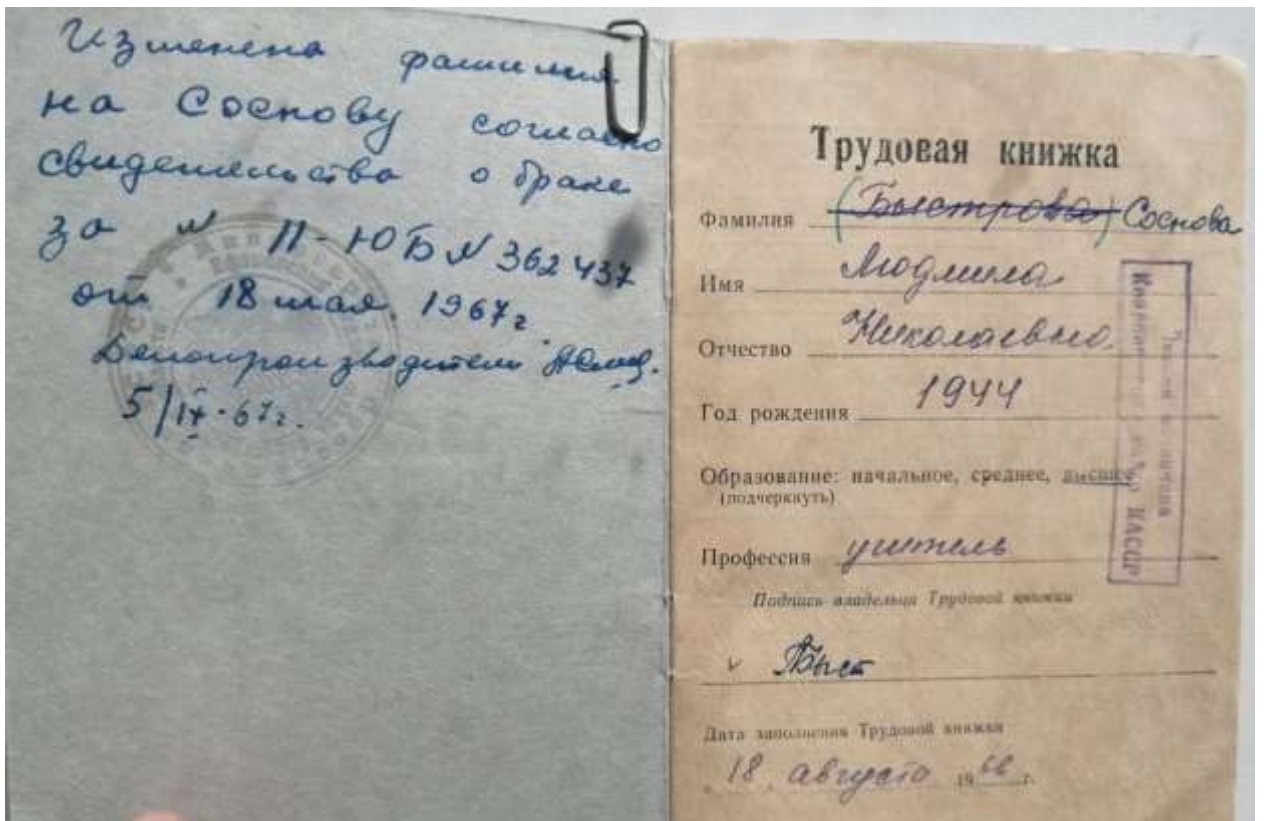 Изменена фамилия
на Соснову согласно
свидетельства о браке
за № II-ЮБ № 362437
от 18 мая 1967г.
Делопроизводитель
5/IX-67г.
Трудовая книжка
Фамилия (Быстрова) Соснова
Имя Людмила
Отчество Николаевна
Год рождения 1944
Образование: начальное, среднее, высшее
(подчеркнуть)
Профессия учитель
Подпись владельца Трудовой книжки
v Быст
Дата заполнения Трудовой книжки
18 августа 1966 г.
КАССР